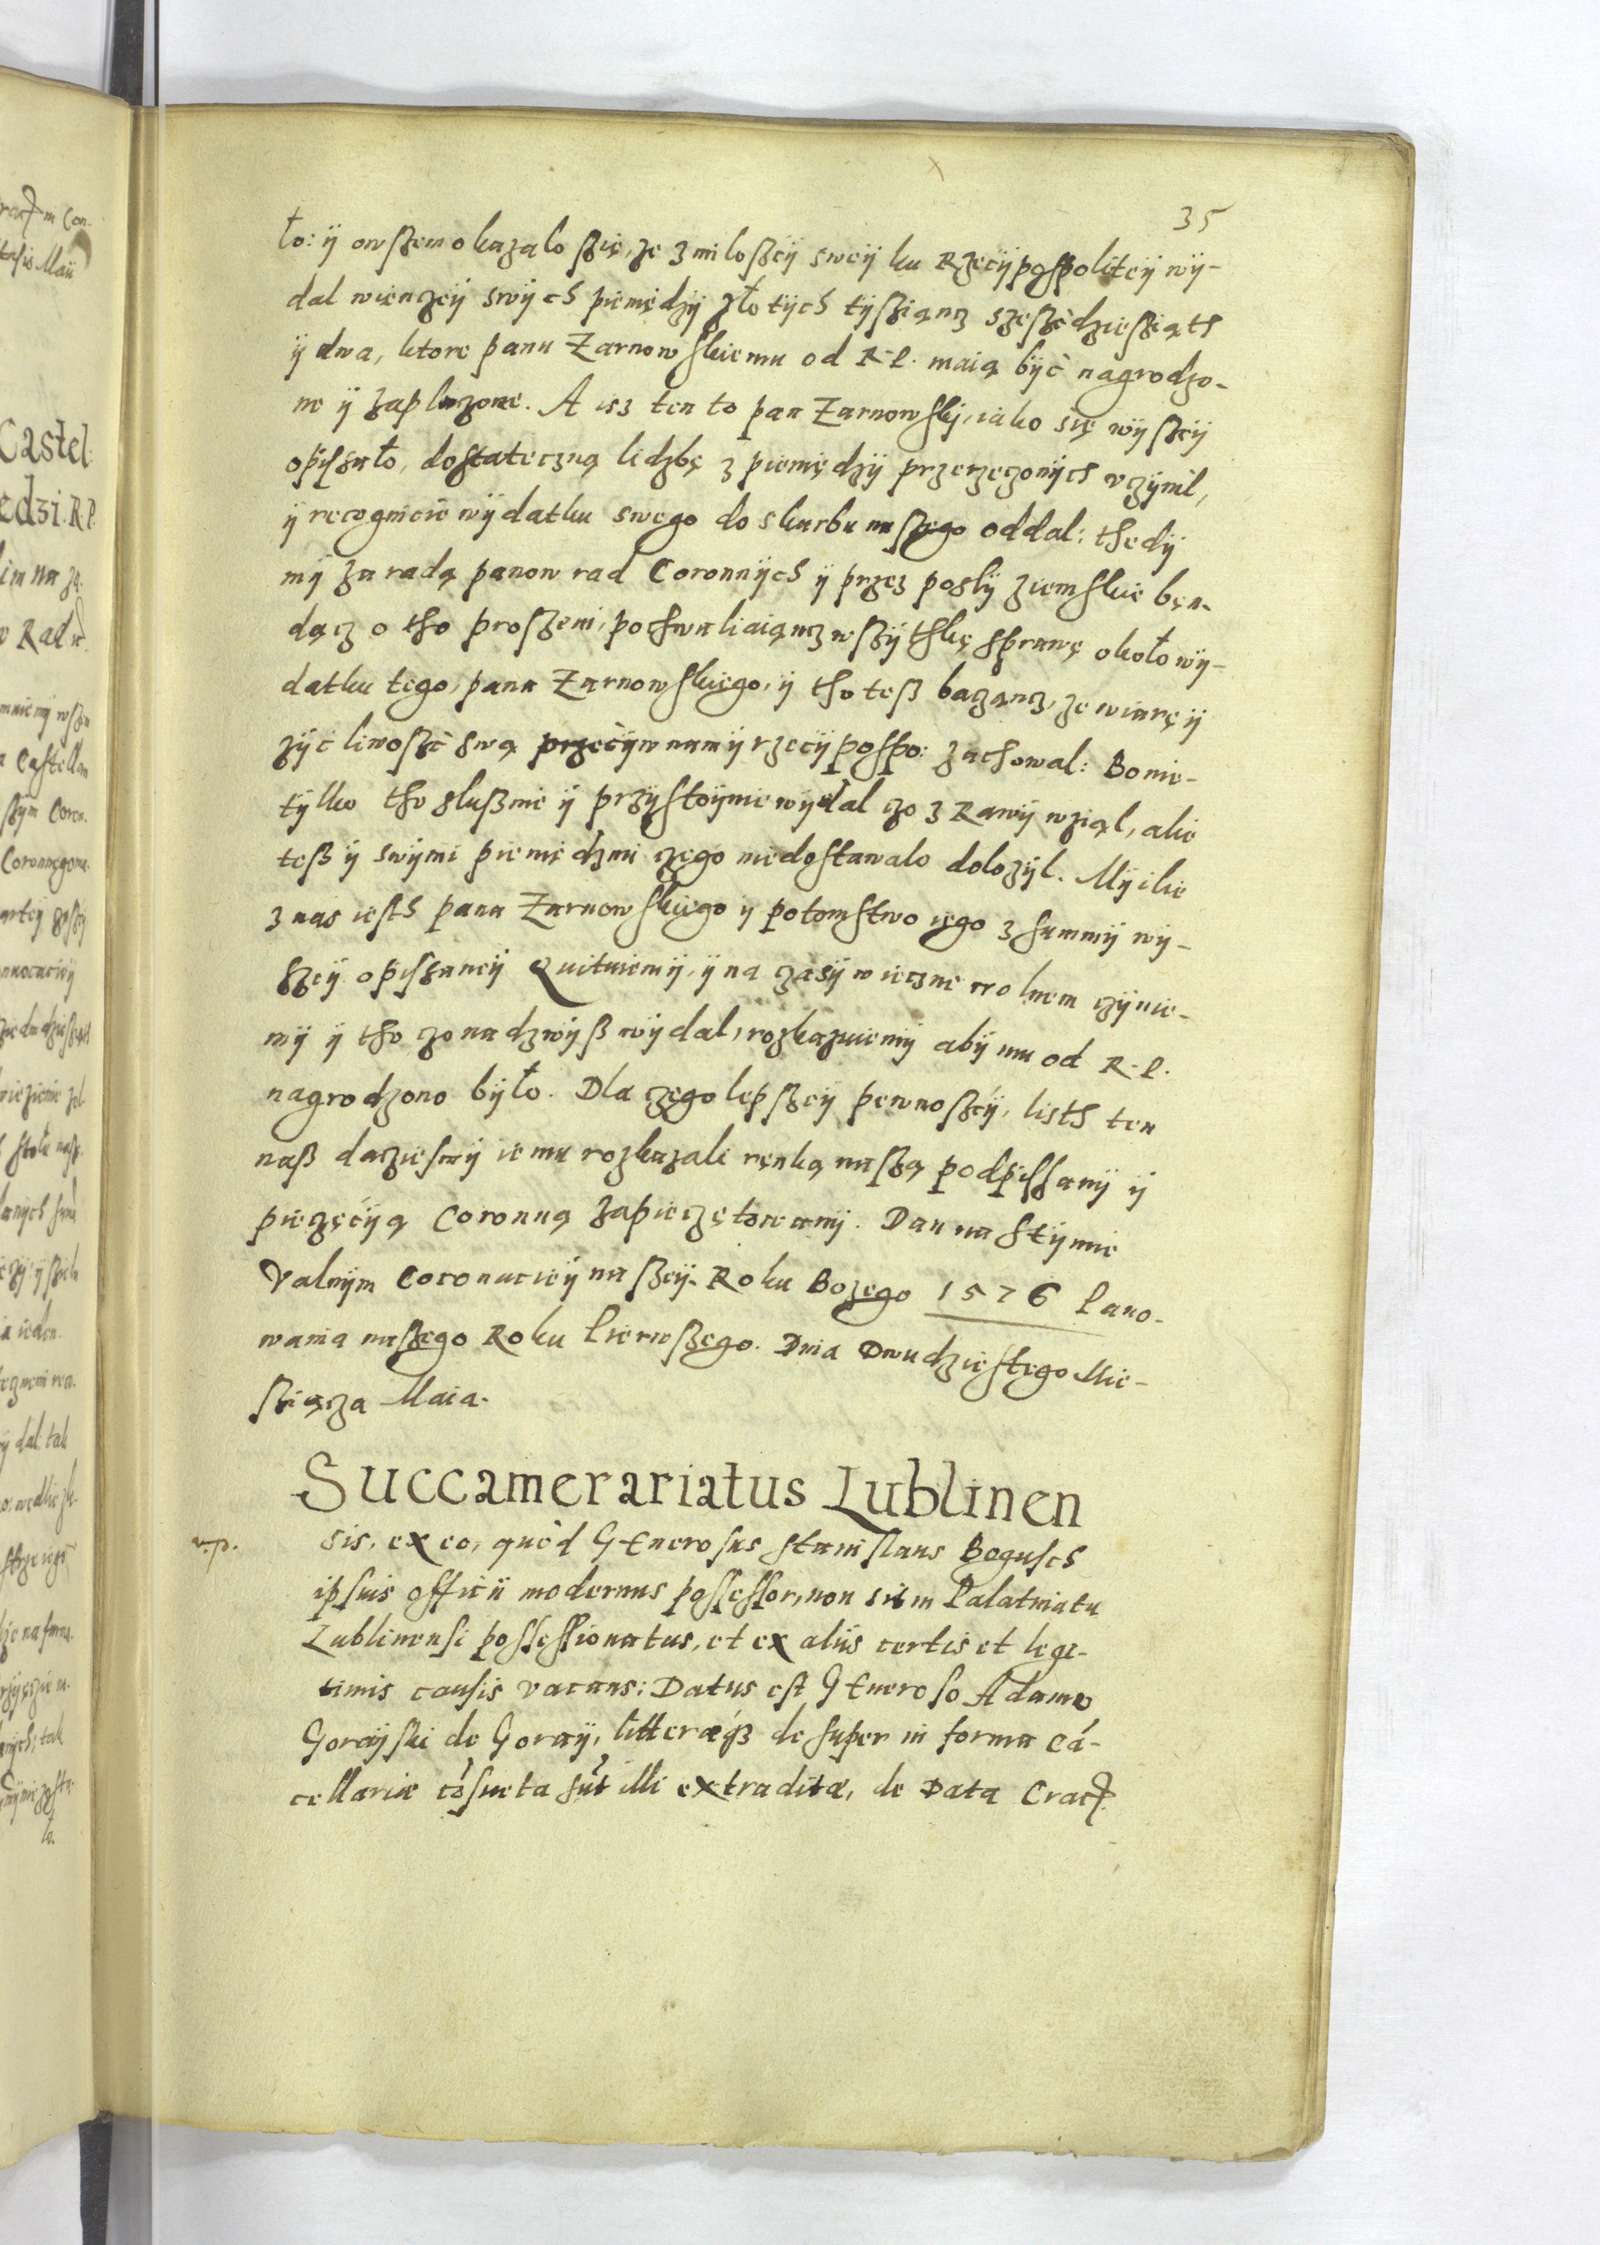 35
ło: ÿ owszem okazalo szię, ze z miloszcÿ sweÿ ku Rzecÿ pospoliteÿ wÿ-
dal wienzeÿ swÿch pieniędzÿ złotÿch tÿsziąncz szeszċdzieszięth
ÿ dwa, ktore panu Zarnowskiemu od R. P. maią bÿċ nagrodzo-
ne ÿ zaplaczone. A isz ten to pan Zarnowskÿ, iako się wÿszeÿ
opissało, dostateczną liczbę z pieniędzÿ przerzeczonÿch uczÿnil,
ÿ recogniciė wÿdatku swego do skarbu naszego oddal: thedÿ
mÿ za radą panow rad Coronnÿch ÿ przez poslÿ ziemskie bęn-
dącz o tho proszeni, pochwaliaiąncz wszÿthkę sprawę około wÿ-
datku tego, pana Zarnowskiego, ÿ tho tesz baczancz, ze wiarę ÿ
zÿcliwoszċ swą przeciw nam ÿ rzecÿ pospo: zachowal: Bo nie-
tÿlko tho sluszniė ÿ przÿstoÿnie wÿdal czo z Rawÿ wziął, alie
tesz ÿ swÿmi pieniędzmi czego niedostawalo dolozÿl. Mÿ ilie
z nas iesth pana Zarnowskiego ÿ potomstwo iego z summÿ wÿ-
szeÿ opissaneÿ Quituiemÿ, ÿ na czasÿ wieczne wolnem czÿnie-
mÿ ÿ tho czo nadzwÿsz wÿdal, rozkazuiemÿ abÿ mu od R. P.
nagrodzono bÿło. Dla czego lepszeÿ pewnoszcÿ, listh ten
nasz daċziesmÿ iemu rozkazali ręnką naszą podpissanÿ ÿ
pieczęcÿą Coronną zapieczętowanÿ. Dan na Seÿmie
Valnÿm Coronacieÿ naszeÿ. Roku Bozego 1576 Pano-
wania naszego Roku Pierwszego. Dnia Dwudziestego Mie-
sziącza Maia.
Succamerariatus Lublinen
sis, ex eo, quòd GEnerosus Stanislaus Bogusch
ipsius officii modernus possessor, non sit in Palatinatu
Lublinensi possessionatus, et ex aliis certis et legi-
timis causis vacans: Datus est GEneroso Adamo
Goraÿski de Goraÿ, litteræq3 de super in forma Cá-
cellariæ cõsueta sũt illi extraditæ, de Data Crac